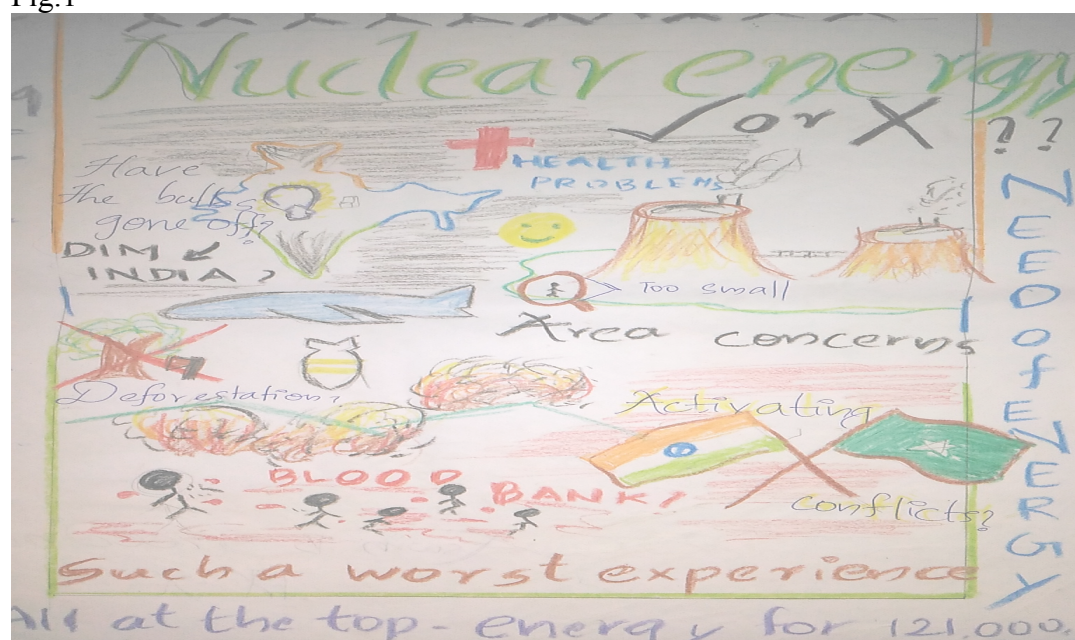 Fig.1
Nuclear energy
✓ or X ??
Have
the bulbs
gone off?
DIM
INDIA?
HEALTH
PROBLEMS
Too small
Area concerns
Deforestation?
Activating
conflicts?
BLOOD
BANK?
Such a worst experience
NEED of ENERGY
at the top - energy for 121,000,